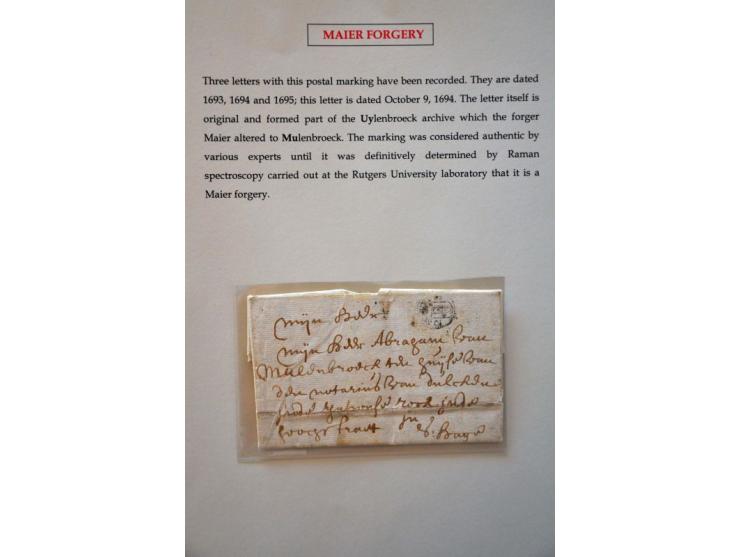 MAIER FORGERY
Three letters with this postal marking have been recorded. They are dated
1693, 1694 and 1695; this letter is dated October 9, 1694. The letter itself is
original and formed part of the Uylenbroeck archive which the forger
Maier altered to Mulenbroeck. The marking was considered authentic by
various experts until it was definitively determined by Raman
spectroscopy carried out at the Rutgers University laboratory that it is a
Maier forgery.
Mijn
Mijn Abragam van
Mulenbroeck van
den notarius van
in